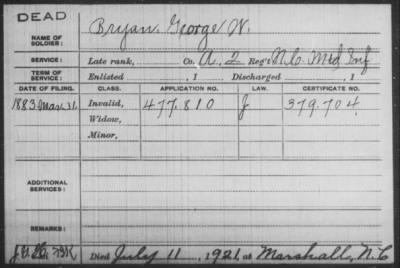 DEAD
NAME OF SOLDIER: Bryan George W.
SERVICE: Late rank, Co. A. 2 Reg't N.C. Mtd Inf
TERM OF SERVICE: Enlisted , 1 Discharged , 1
DATE OF FILING. CLASS. APPLICATION NO. LAW. CERTIFICATE NO.
1883 Mar 31. Invalid, 477.810 J 379.704
Widow,
Minor,
ADDITIONAL SERVICES:
REMARKS:
Died July 11, 1921, at Marshall, N.C